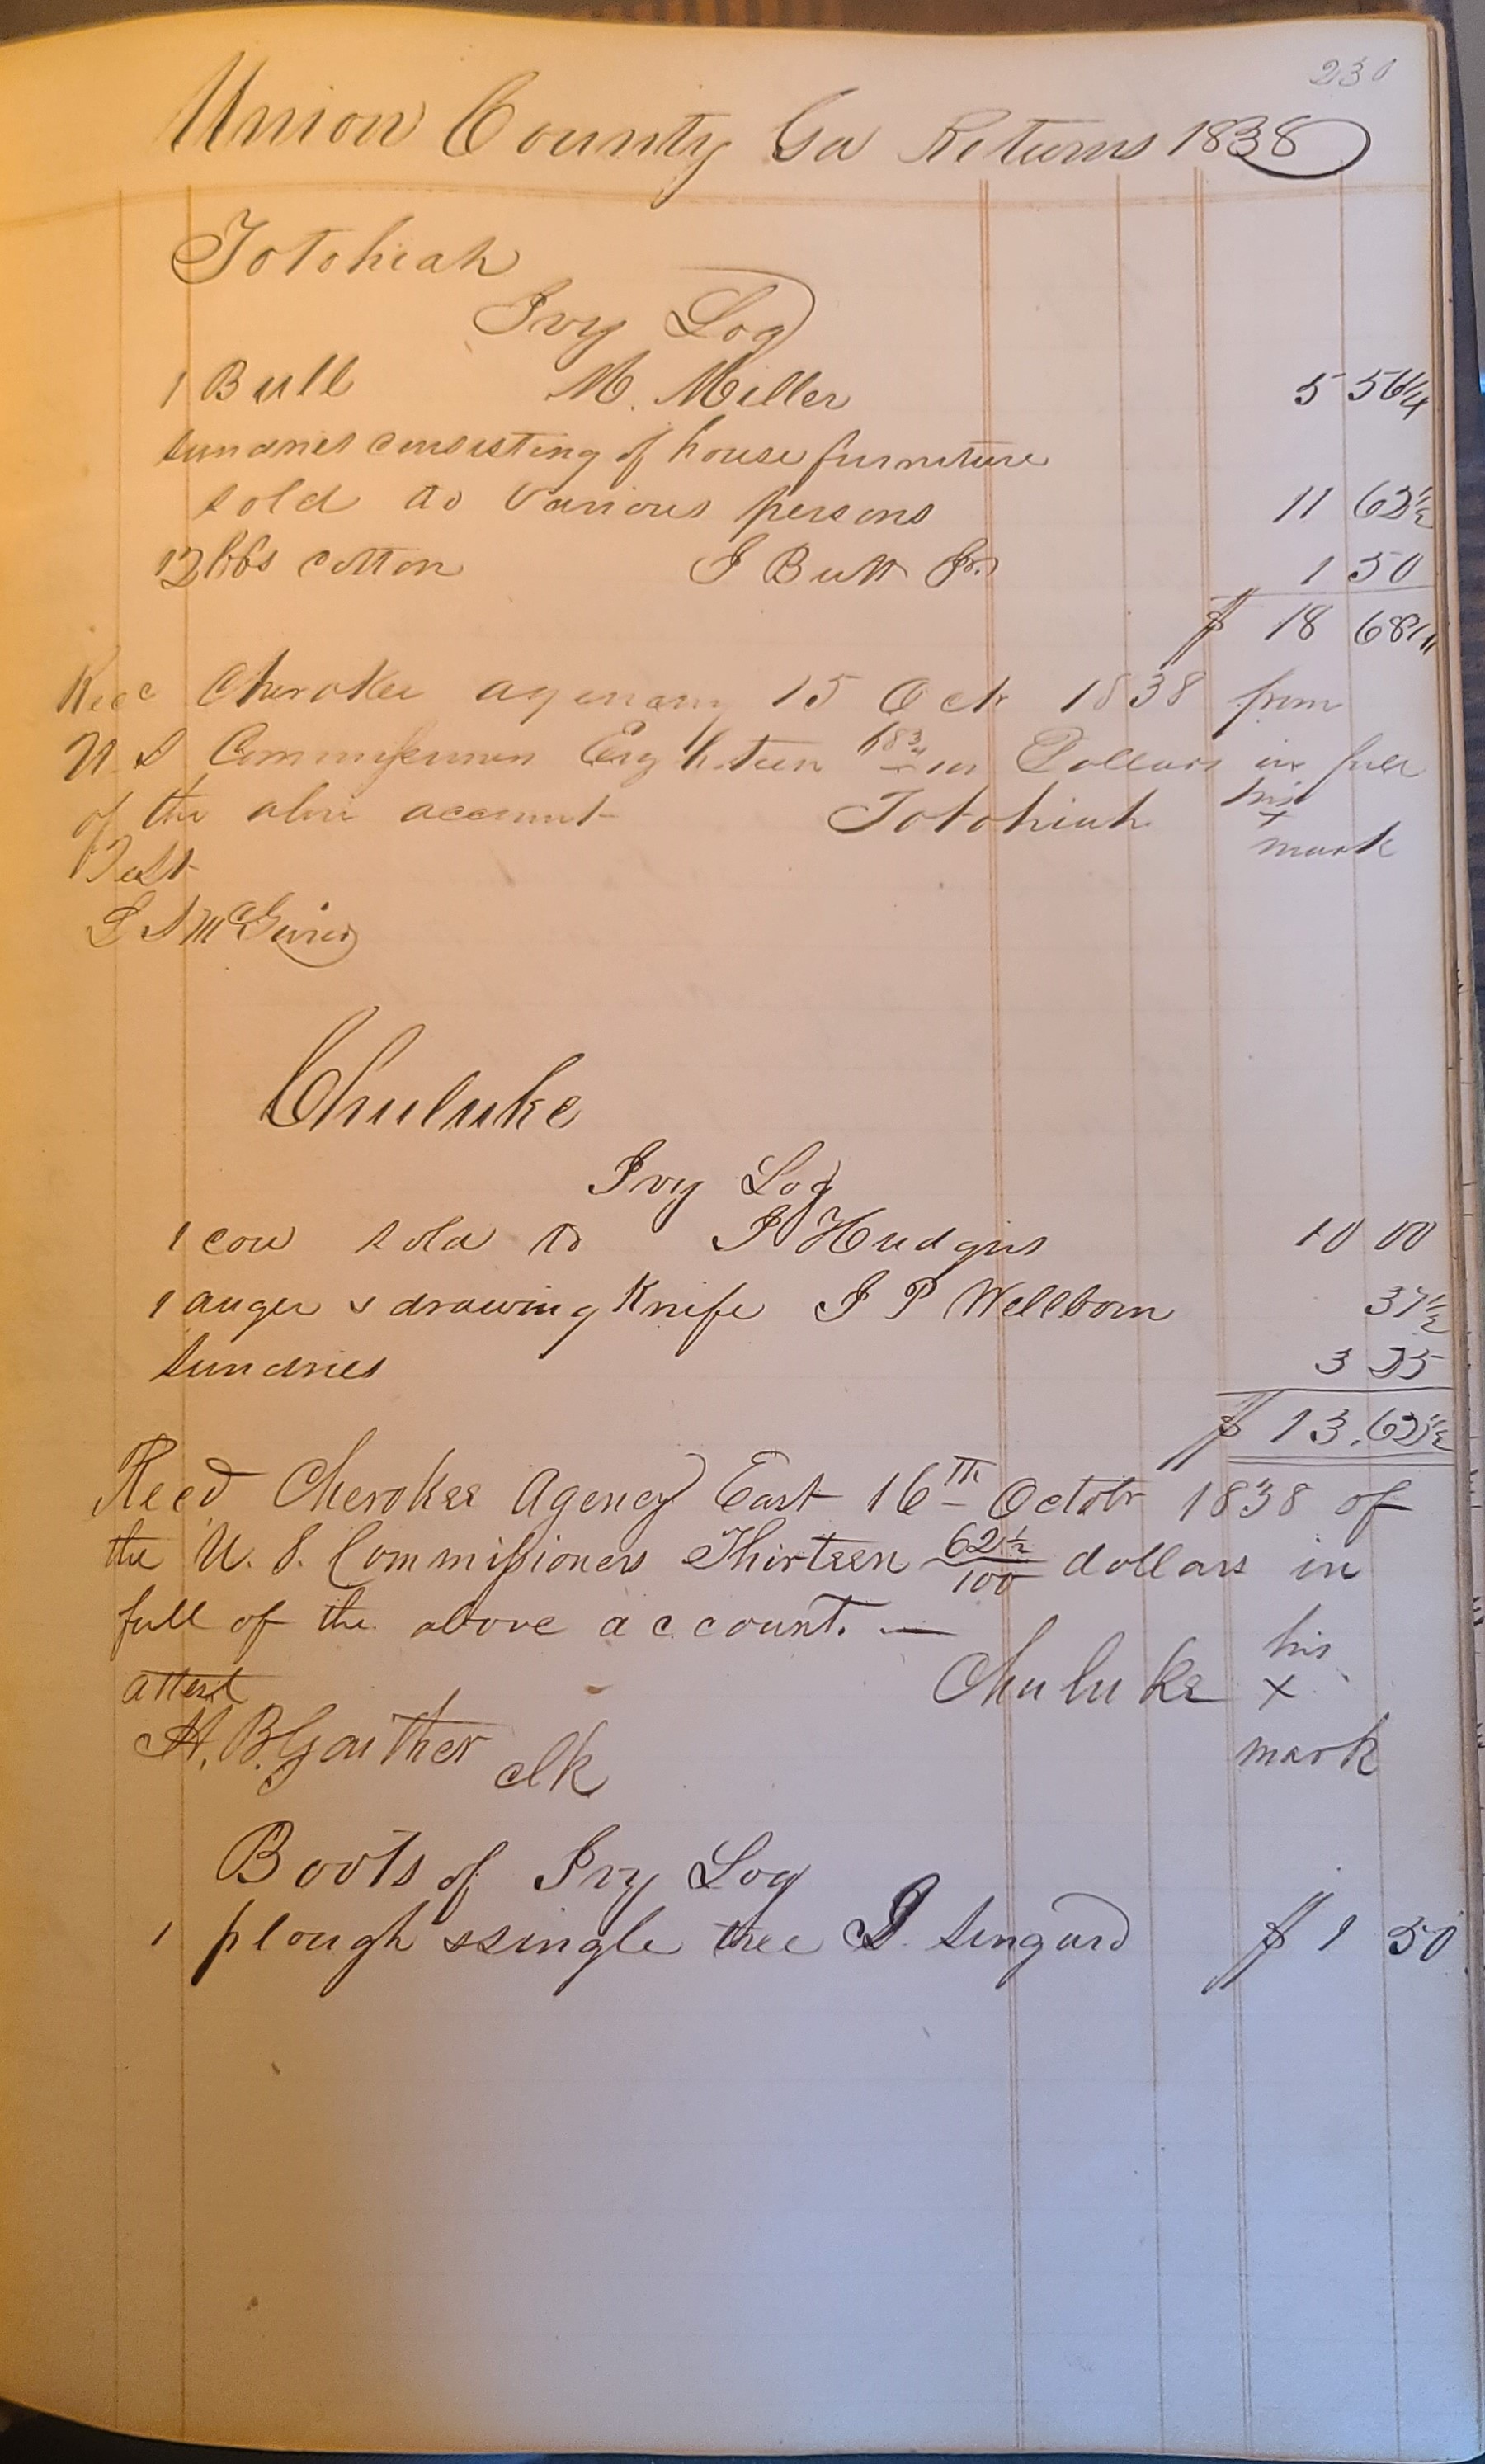 230
Union County Ga Returns 1838
Totohiah
Ivy Log
1 Bull M. Miller 5 56 1/4
sundries consisting of house furniture
sold to various persons 11 62 1/2
12 lbbs cotton J Butt Jr. 1 50
$ 18 68
Recd Cherokee agency 15 Oct 1838 from
U S Commissioners Eighteen 68 3/4 Dollars in full
of the above account Totohiah his
x
mark
Test
Chuluke
Ivy Log
1 cow sold to J Hudgins 10 00
1 auger & drawing Knife J P Wellborn 37 1/2
sundries 3 25
$ 13.62 1/2
Recd Cherokee Agency East 16th Octobr 1838 of
the U. S. Commissioners Thirteen 62 1/2/100 dollars in
full of the above account. —
Chuluke his
x
mark
attest
A. B. Gaither clk
Boots of Ivy Log
1 plough & single tree $ 1 50